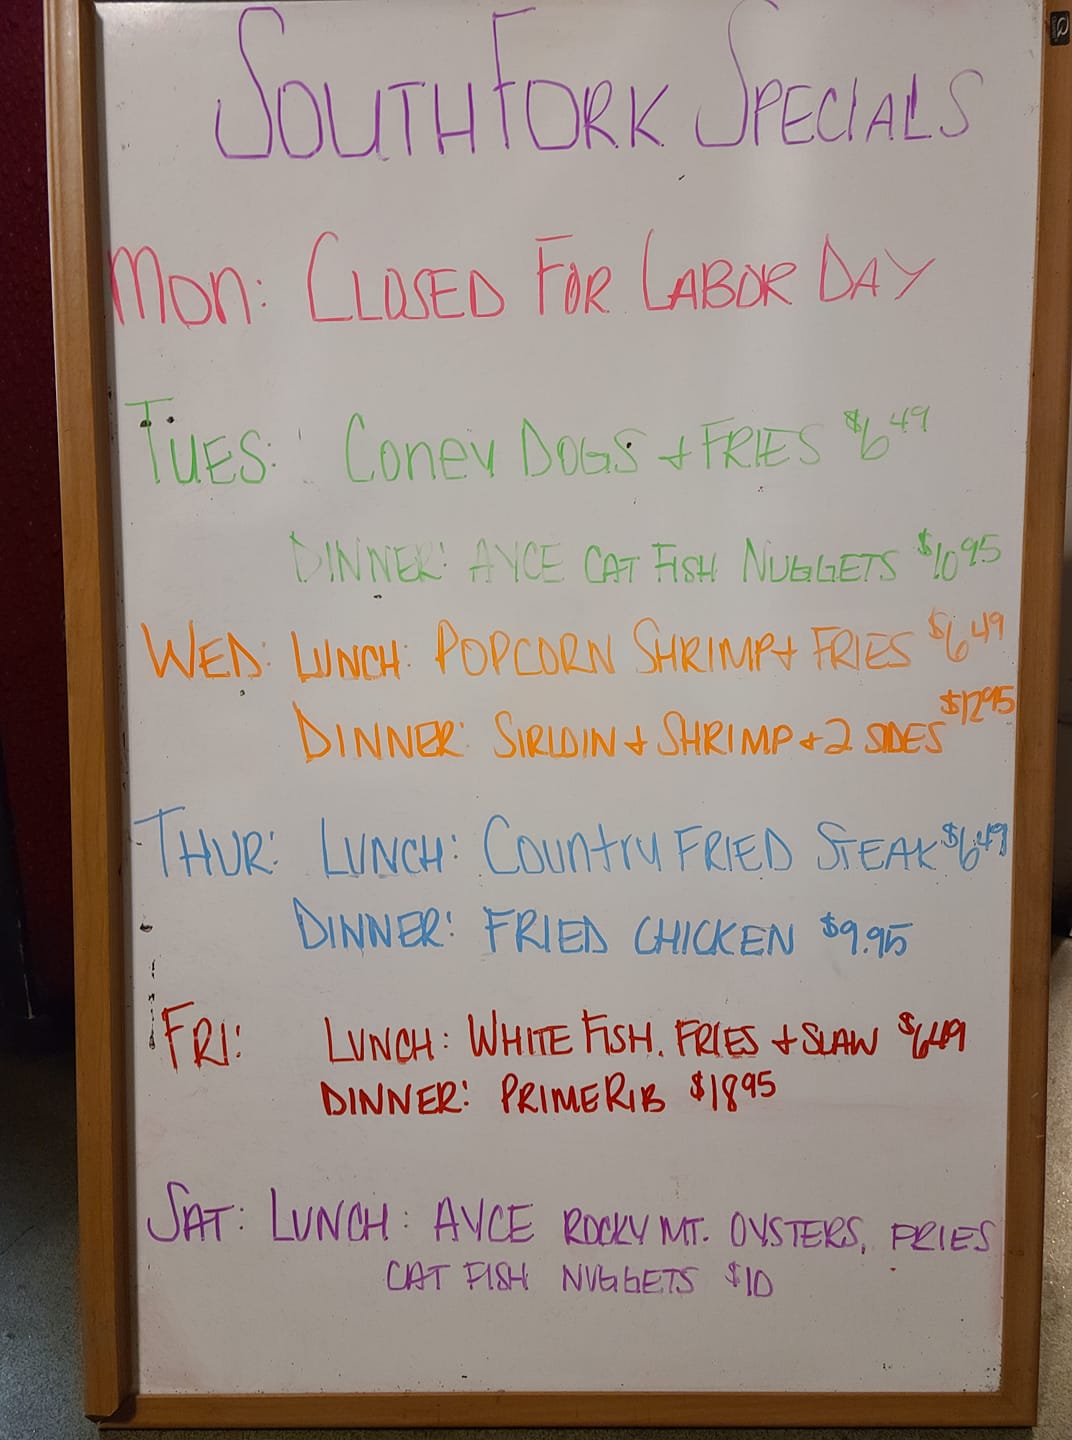 SOUTHFORK SPECIALS
MON: CLOSED FOR LABOR DAY
TUES: CONEY DOGS + FRIES $6 49
DINNER: AYCE CAT FISH NUGGETS $10 95
WED: LUNCH: POPCORN SHRIMP + FRIES $6 49
DINNER: SIRLOIN + SHRIMP + 2 SIDES $12 95
THUR: LUNCH: COUNTRY FRIED STEAK $6 49
DINNER: FRIED CHICKEN $9.95
FRI: LUNCH: WHITE FISH. FRIES + SLAW $6 49
DINNER: PRIME RIB $18 95
SAT: LUNCH: AYCE ROCKY MT. OYSTERS, FRIES
CAT FISH NUGGETS $10